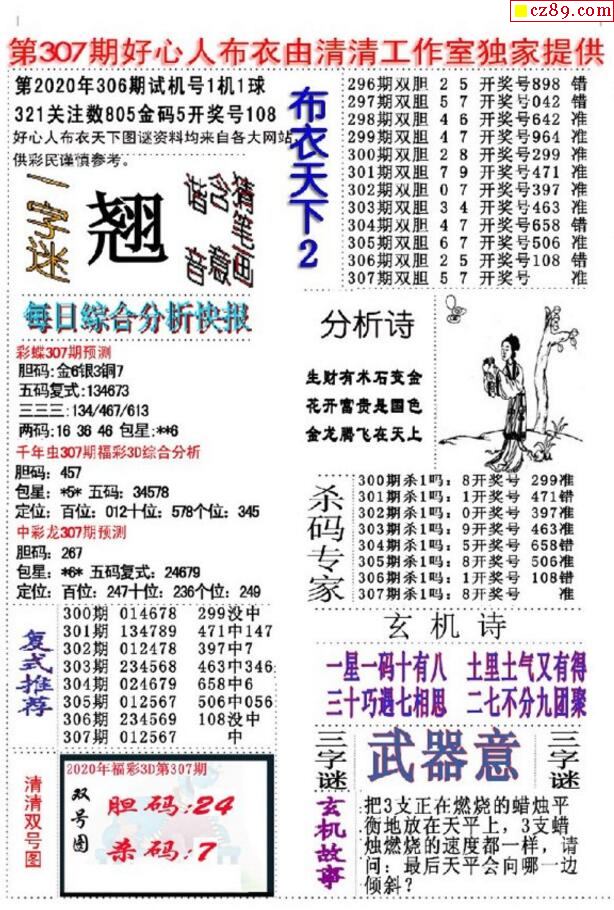 cz89.com
第307期好心人布衣由清清工作室独家提供
第2020年306期试机号1机1球
321关注数805金码5开奖号108
好心人布衣天下图谜资料均来自各大网站,
供彩民谨慎参考。
一字迷
翘
谐含猜笔画
音意
每日综合分析快报
彩蝶307期预测
胆码:金6银3铜7
五码复式:134673
三三三:134/467/613
两码:16 36 46 包星:**6
千年虫307期福彩3D综合分析
胆码: 457
包星: *5* 五码: 34578
定位: 百位: 012十位: 578个位: 345
中彩龙307期预测
胆码: 267
包星: *6* 五码复式: 24679
定位: 百位: 247十位: 236个位: 249
复式推荐
300期 014678 299没中
301期 134789 471中147
302期 012478 397中7
303期 234568 463中346
304期 024679 658中6
305期 012567 506中056
306期 234569 108没中
307期 012567 中
清清双号图
2020年福彩3D第307期
双号图
胆码:24
杀码:7
布衣天下2
296期双胆 2 5 开奖号898 错
297期双胆 5 7 开奖号042 错
298期双胆 4 6 开奖号642 准
299期双胆 4 7 开奖号964 准
300期双胆 2 8 开奖号299 准
301期双胆 7 9 开奖号471 准
302期双胆 0 7 开奖号397 准
303期双胆 3 4 开奖号463 准
304期双胆 4 7 开奖号658 错
305期双胆 6 7 开奖号506 准
306期双胆 2 5 开奖号108 错
307期双胆 5 7 开奖号 准
分析诗
生财有术石变金
花开富贵是国色
金龙腾飞在天上
杀码专家
300期杀1吗: 8开奖号 299准
301期杀1吗: 1开奖号 471错
302期杀1吗: 0开奖号 397准
303期杀1吗: 9开奖号 463准
304期杀1吗: 5开奖号 658错
305期杀1吗: 8开奖号 506准
306期杀1吗: 1开奖号 108错
307期杀1吗: 8开奖号 准
玄机诗
一星一码十有八 土里土气又有得
三十巧遇七相思 二七不分九团聚
三字谜
武器意
三字谜
玄机故事
把3支正在燃烧的蜡烛平
衡地放在天平上，3支蜡
烛燃烧的速度都一样，请
问：最后天平会向哪一边
倾斜？